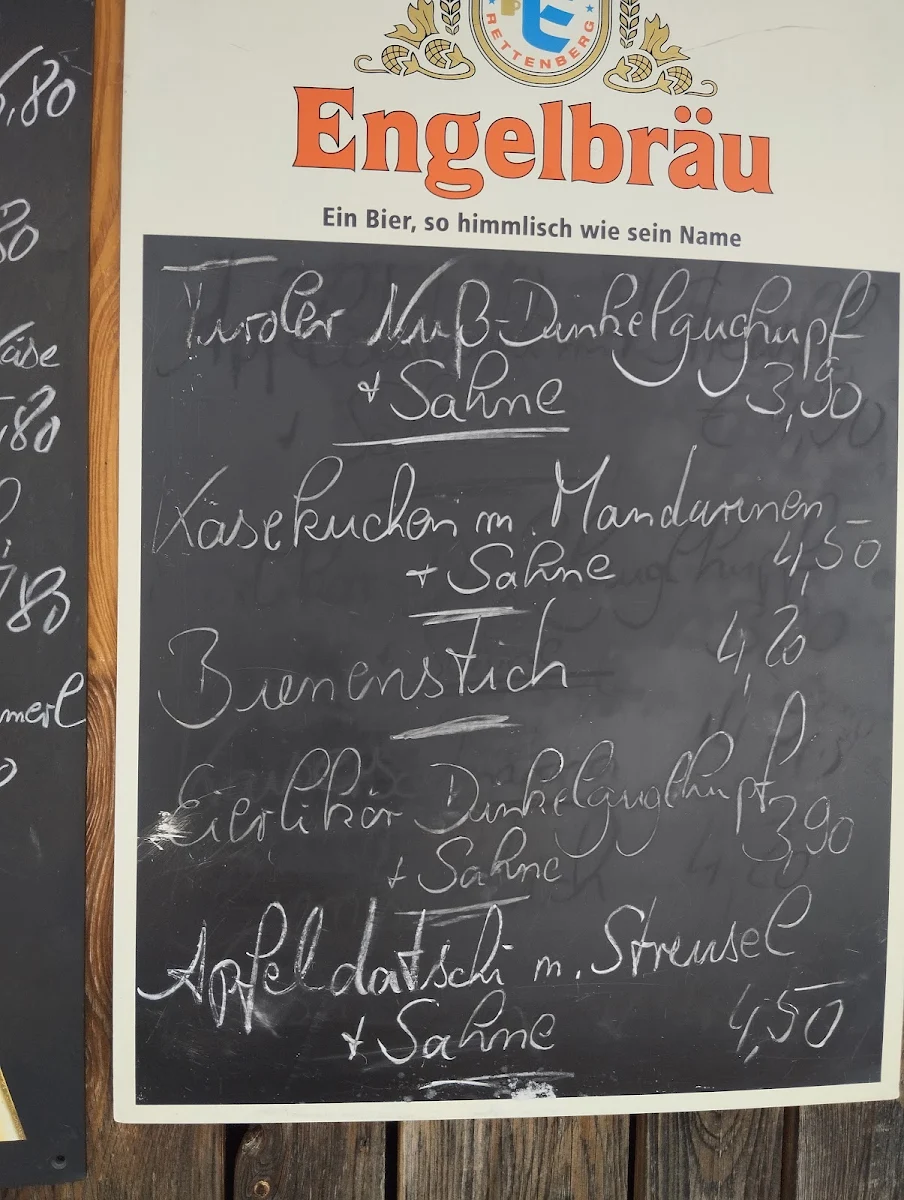 6,80
80
Käse
,80
780
merl
0
E
RETTENBERG
Engelbräu
Ein Bier, so himmlisch wie sein Name
Tiroler Nuß-Dinkelguglhupf
+ Sahne 3,90
Käsekuchen m. Mandarinen
+ Sahne 4,50
Bienenstich 4,20
Eierlikör Dinkelguglhupf
+ Sahne 3,90
Apfeldatschi m. Streusel
+ Sahne 4,50